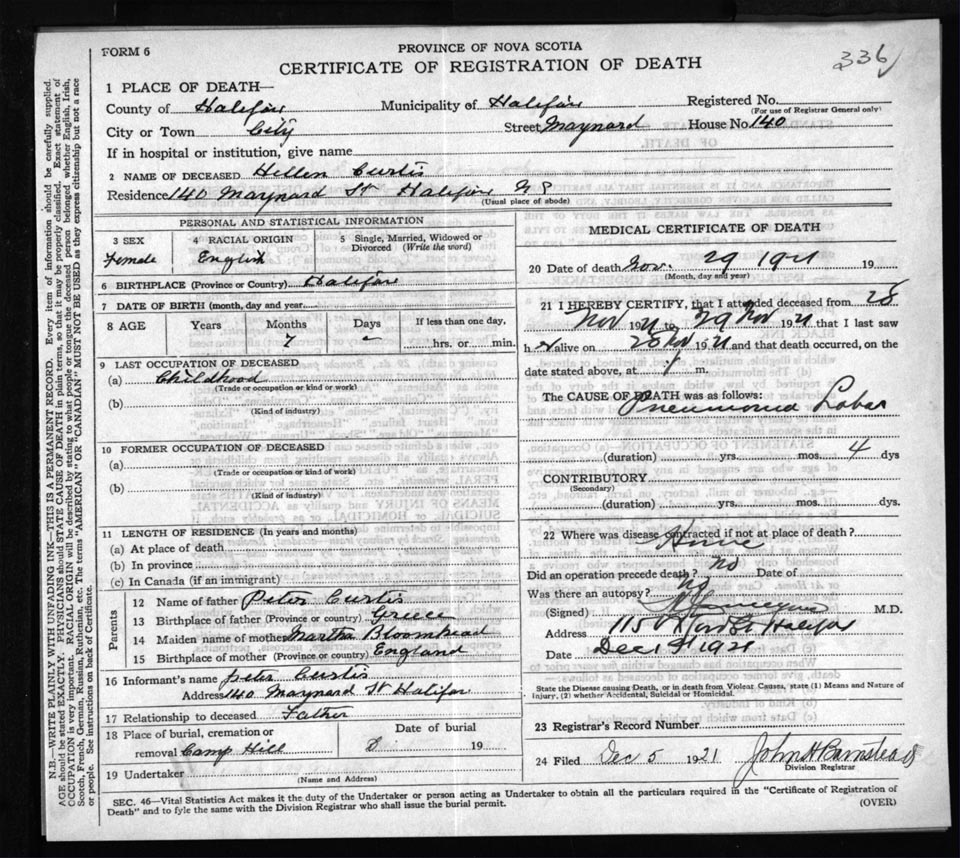 FORM 6
PROVINCE OF NOVA SCOTIA
336
CERTIFICATE OF REGISTRATION OF DEATH
1 PLACE OF DEATH—
County of Halifax Municipality of Halifax Registered No.
(For use of Registrar General only)
City or Town City Street Maynard House No. 140
If in hospital or institution, give name
2 NAME OF DECEASED Hellen Curtis
Residence 140 Maynard St Halifax N S
(Usual place of abode)
PERSONAL AND STATISTICAL INFORMATION
3 SEX 4 RACIAL ORIGIN 5 Single, Married, Widowed or Divorced (Write the word)
Female English
6 BIRTHPLACE (Province or Country) Halifax
7 DATE OF BIRTH (month, day and year)
8 AGE Years Months Days If less than one day,
7 - hrs. or min.
9 LAST OCCUPATION OF DECEASED
(a) Childhood
(Trade or occupation or kind or work)
(b)
(Kind of industry)
10 FORMER OCCUPATION OF DECEASED
(a)
(Trade or occupation or kind of work)
(b)
(Kind of industry)
11 LENGTH OF RESIDENCE (In years and months)
(a) At place of death
(b) In province
(c) In Canada (if an immigrant)
Parents
12 Name of father Peter Curtis
13 Birthplace of father (Province or country) Greece
14 Maiden name of mother Martha Bloomhead
15 Birthplace of mother (Province or country) England
16 Informant's name Peter Curtis
Address 140 Maynard St Halifax
17 Relationship to deceased Father
18 Place of burial, cremation or Date of burial
removal Camp Hill 19
19 Undertaker
(Name and Address)
MEDICAL CERTIFICATE OF DEATH
20 Date of death Nov. 29 1921 19
(Month, day and year)
21 I HEREBY CERTIFY, that I attended deceased from 28
Nov 1921 to 29 Nov 1921 that I last saw
h alive on 28 Nov 1921 and that death occurred, on the
date stated above, at m.
The CAUSE OF DEATH was as follows:
Pneumonia Lobar
(duration) yrs. mos. 4 dys
CONTRIBUTORY
(Secondary)
(duration) yrs. mos. dys.
22 Where was disease contracted if not at place of death?
Home
Did an operation precede death? no Date of
Was there an autopsy? no
(Signed) M.D.
Address 115 Halifax
Date Dec 1921
State the Disease causing Death, or in death from Violent Causes, state (1) Means and Nature of
Injury, (2) whether Accidental, Suicidal or Homicidal.
23 Registrar's Record Number
24 Filed Dec 5 1921 John H Barnstead
Division Registrar
SEC. 46—Vital Statistics Act makes it the duty of the Undertaker or person acting as Undertaker to obtain all the particulars required in the "Certificate of Registration of
Death" and to fyle the same with the Division Registrar who shall issue the burial permit.
(OVER)
N.B.—WRITE PLAINLY WITH UNFADING INK—THIS IS A PERMANENT RECORD. Every item of information should be carefully supplied.
AGE should be stated EXACTLY. PHYSICIANS should STATE CAUSE OF DEATH in plain terms, so that it may be properly classified. Exact statement of
OCCUPATION is very important. RACIAL ORIGIN will be described by stating to what people or tongue the deceased person belonged whether English, Irish,
Scotch, French, German, Russian, Ruthenian, etc. The terms "AMERICAN" OR "CANADIAN" MUST NOT BE USED as they express citizenship but not a race
or people. See instructions on back of Certificate.